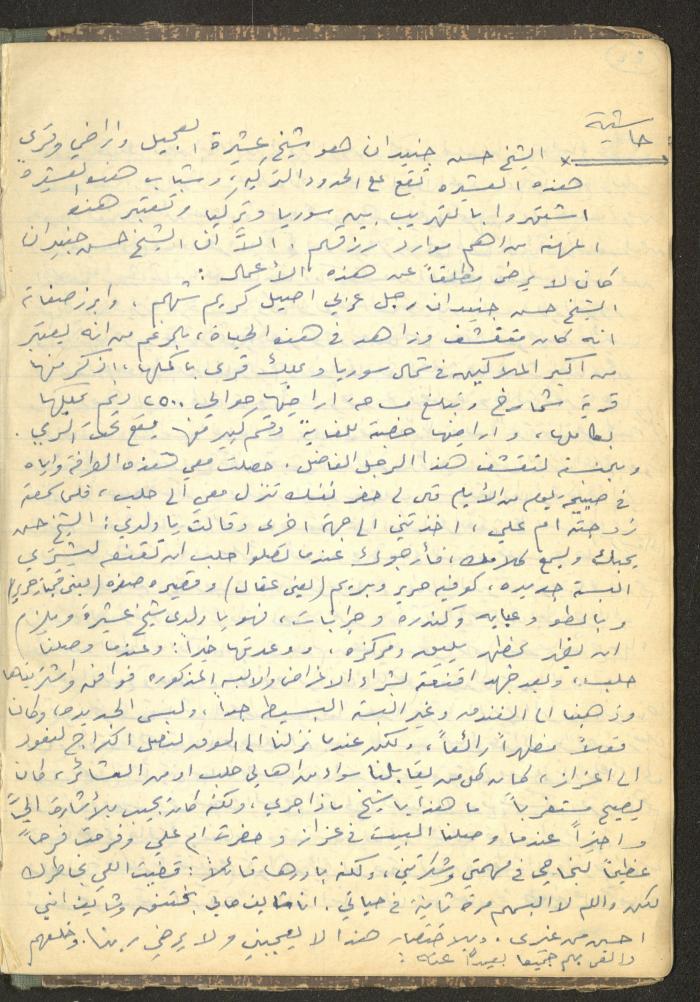 حاشية
الشيخ حسن جنيدان هو شيخ عشيرة العجيل واراضي وقرى
هذه العشيره تقع على الحدود التركيه، وشباب هذه العشيرة
اشتهروا بالتهريب بين سوريا وتركيا وتعتبر هذه
المهنه من اهم موارد رزقهم. الاَّ ان الشيخ حسن جنيدان
كان لا يرضى مطلقاً عن هذه الأعمال:
الشيخ حسن جنيدان رجل عربي اصيل كريم شهم، وابرز صفاته
انه كان متقشف وزاهد في هذه الحياة، بالرغم من انه يعتبر
من اكبر الملاكين في شمال سوريا ويملك قرى باكملها، اذكر منها
قرية شمارخ وتبلغ مساحة اراضيها حوالي ٢٥٠٠ يملكها
بكاملها، واراضيها خصبة للغاية وقسم كبير منها يقع تحت الري.
وبالنسبة لتقشف هذا الرجل الفاضل. حصلت معي هذه الطرافة واياه
في صبيحة يوم من الأيام قال لي حضر نفسك تنزل معي الى حلب، فلما سمعت
زوجته ام علي، اخذتني الى جهة اخرى وقالت يا ولدي: الشيخ حسن
يحبك ويسمع كلامك، فأرجوك عندما تصلوا حلب ان تقنعه ليشتري
البسة جديده، كوفيه حرير وبريم (يعني عقال) وقصيره (يعني حريري)
وبالطو وعبايه وكندره وجرابات، فهو يا ولدي شيخ عشيرة ويلزم
ان يظهر بمظهر يليق ومركزه، ووعدتها خيراً: وعندما وصلنا
حلب، وبعد جهد اقنعته لشراء الاغراض والالبسه المذكوره فوافق واشتريناها
وذهبنا الى الفندق وغير البسته البسيطه جداً، ولبس الجديده، وكان
فعلاً مظهراً رائعاً، ولكن عندما نزلنا الى السوق لنصل الكراج لنعود
الى اعزاز، كان كل من يقابلنا سواء من اهالي حلب او من العشائر، كان
يصيح مستغرباً ما هذا يا شيخ ماذا جرى، ولكنه كان يجيب بالأشارة اليَّ
واخيراً عندما وصلنا البيت في عزاز وحضرت ام علي وفرحت فرحاً
عظيماً لنجاحي في مهمتي وشكرتني، ولكنه بادرها قائلاً: قضيت اللي بخاطرك
لكن والله لا البسهم مرة ثانية في حياتي. انا شايف حالي مختنق وشايف اني
احسن من غيري. وبلاختصار هذا لا يعجبني ولا يرضي ربنا. وخلعهم
والقى بهم جميعا بعيداً عنه: